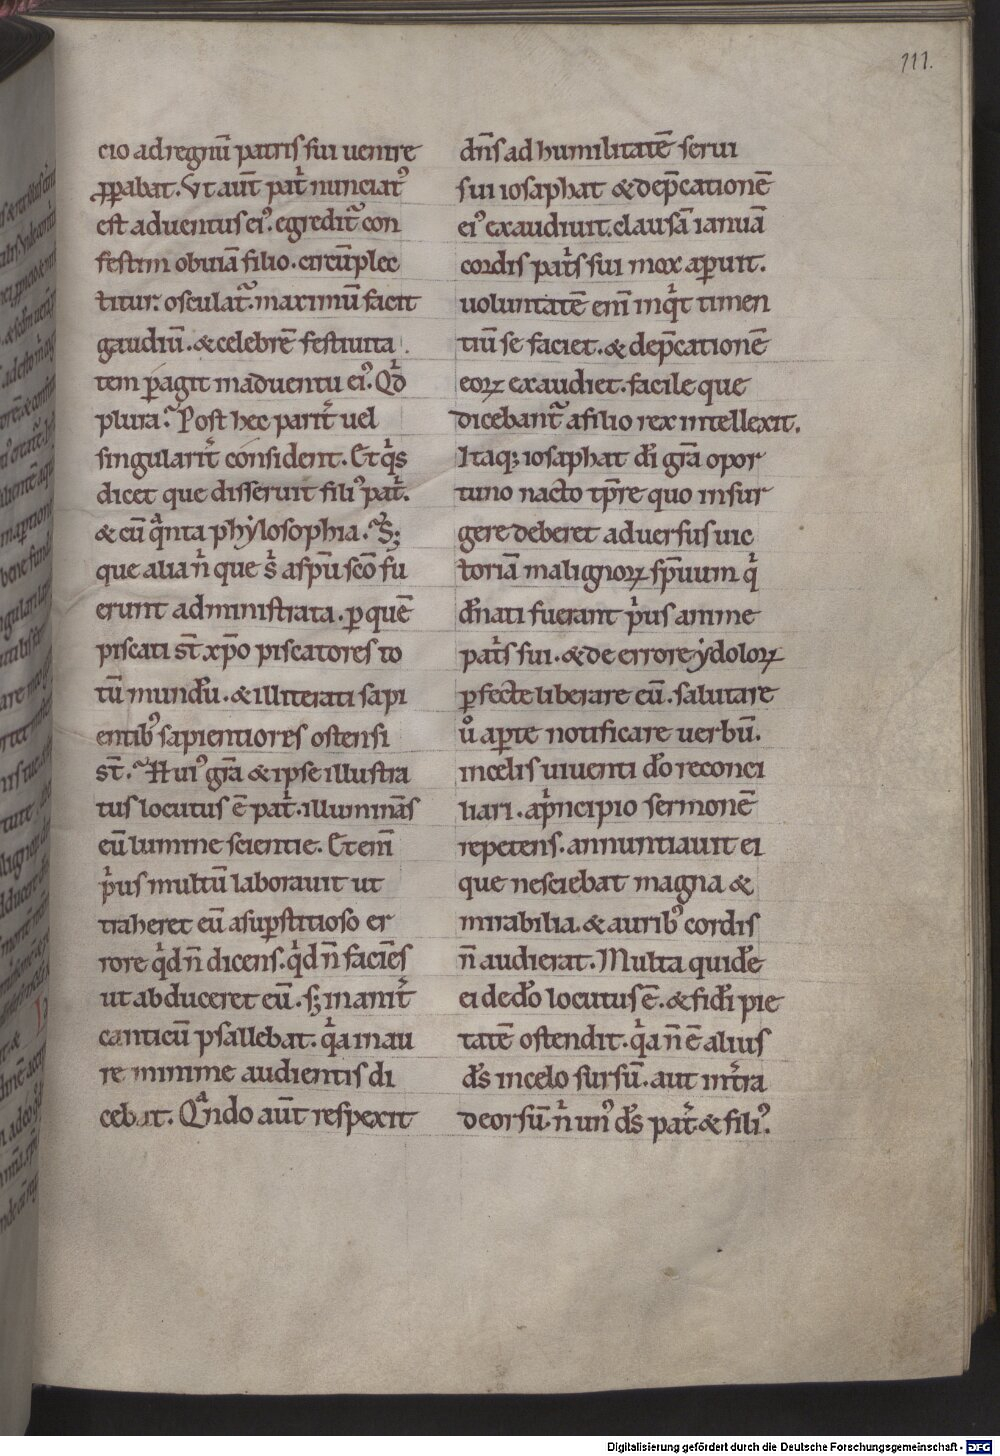 111.
cio ad regnū patris sui uenire
ꝓꝑabat. Vt aut̄ pat̓ nunciat᾽
est aduentus ei᾽. egredit᷑ con
festim obuiā filio. circūplec
titur. osculat᷑. maximū facit
gaudiū. & celebrē festiuita
tem ꝑagit in aduentu ei᾽. Qd̓
plura? Post hec parit̓ uel
singularit̓ consident. Et qⁱs
dicet que disseruit fili᾽ pat̓.
& cū qᵃnta phẏlosophia? S;
que alia n̓ que s̓ a sp̄u sc̄o fu
erunt administrata. ꝑ quē
piscati st̄ xp̄o piscatores to
tū mundū. & illiterati sapi
entib᾽ sapientiores ostensi
st̄. Hui᾽ gr̄a & ipse illustra
tus locutus ē pat̓. illuminās
eū lumine scientie. Et eni̅
pⁱus multū laborauit ut
traheret eū a suꝑstitioso er
rore qⁱd n̄ dicens. qⁱd n̄ faciēs
ut abduceret eū. s; inanit̓
canticū psallebat. qⁱa in au
re minime audientis di
cebat. Qᵃndo aut̄ respexit
dn̄s ad humilitatē serui
sui iosaphat & dep̄cationē
ei᾽ exaudiuit. clausā ianuā
cordis pat̓s sui mox aꝑuit.
uoluntatē eni̅ inqⁱt timen
tiū se faciet. & dep̄cationē
eoꝝ exaudiet. facile que
dicebant᷑ a filio rex intellexit.
Itaq; iosaphat di̓ gr̄a opor
tuno nacto tp̄re quo insur
gere deberet aduersus uic
toriā malignioꝝ sp̄uum qⁱ
dn̄ati fuerant pⁱus anime
pat̓s sui. & de errore ẏdoloꝝ
ꝑfecte liberare eū. salutare
u̓ aꝑte notificare uerbū.
in celis uiuenti do̓ reconci
liari. a pⁱncipio sermonē
repetens. annuntiauit ei
que nesciebat magna &
mirabilia. & aurib᾽ cordis
n̄ audierat. Multa quidē
ei de do̓ locutus ē. & fidi̓ pie
tatē ostendit. qⁱa n̄ ē alius
ds̓ in celo sursū. aut in tr̓ra
deorsū. n̓ un᾽ ds̓ pat̓ & fili᾽.
Digitalisierung gefördert durch die Deutsche Forschungsgemeinschaft - DFG